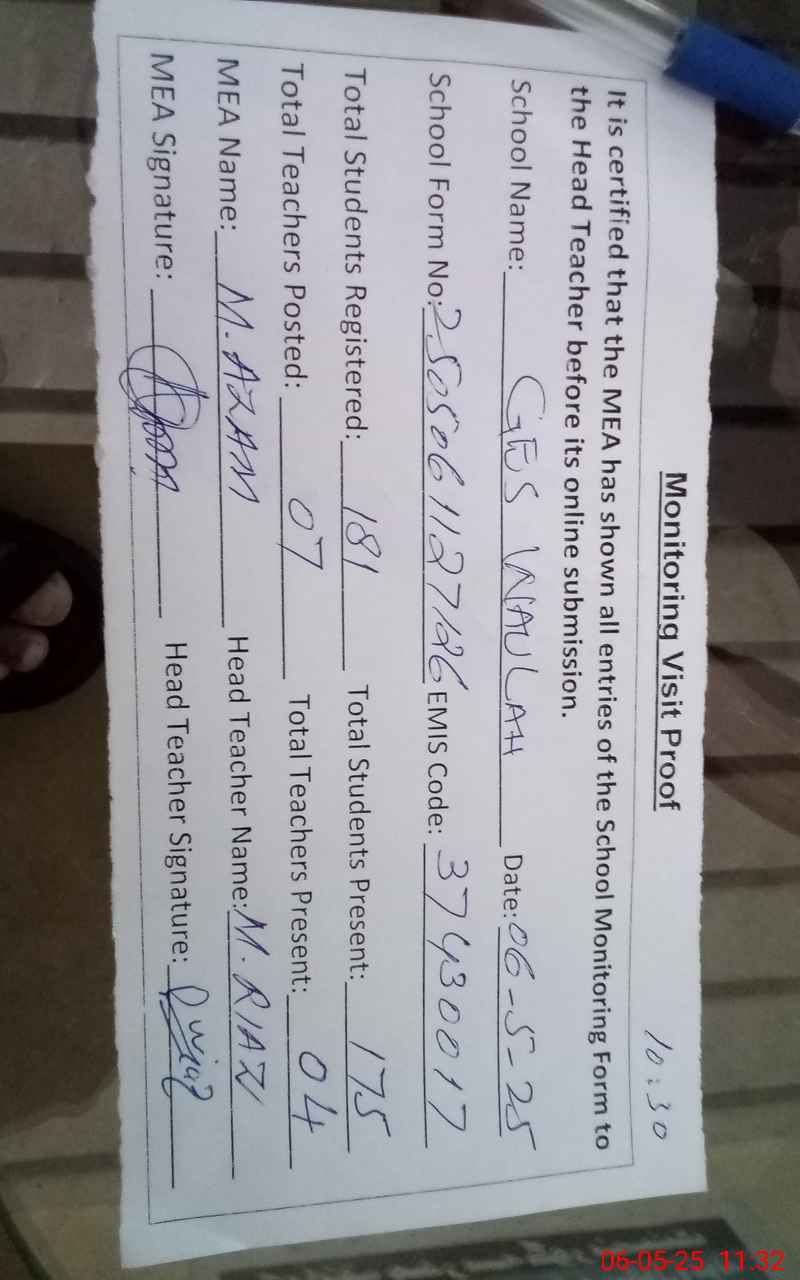 10:30
Monitoring Visit Proof
It is certified that the MEA has shown all entries of the School Monitoring Form to
the Head Teacher before its online submission.
School Name: GES WAULAH Date: 06-5-25
School Form No: 2505061127126 EMIS Code: 37430017
Total Students Registered: 181 Total Students Present: 175
Total Teachers Posted: 07 Total Teachers Present: 04
MEA Name: M. AZAM Head Teacher Name: M. RIAZ
MEA Signature: Head Teacher Signature:
06-05-25 11:32